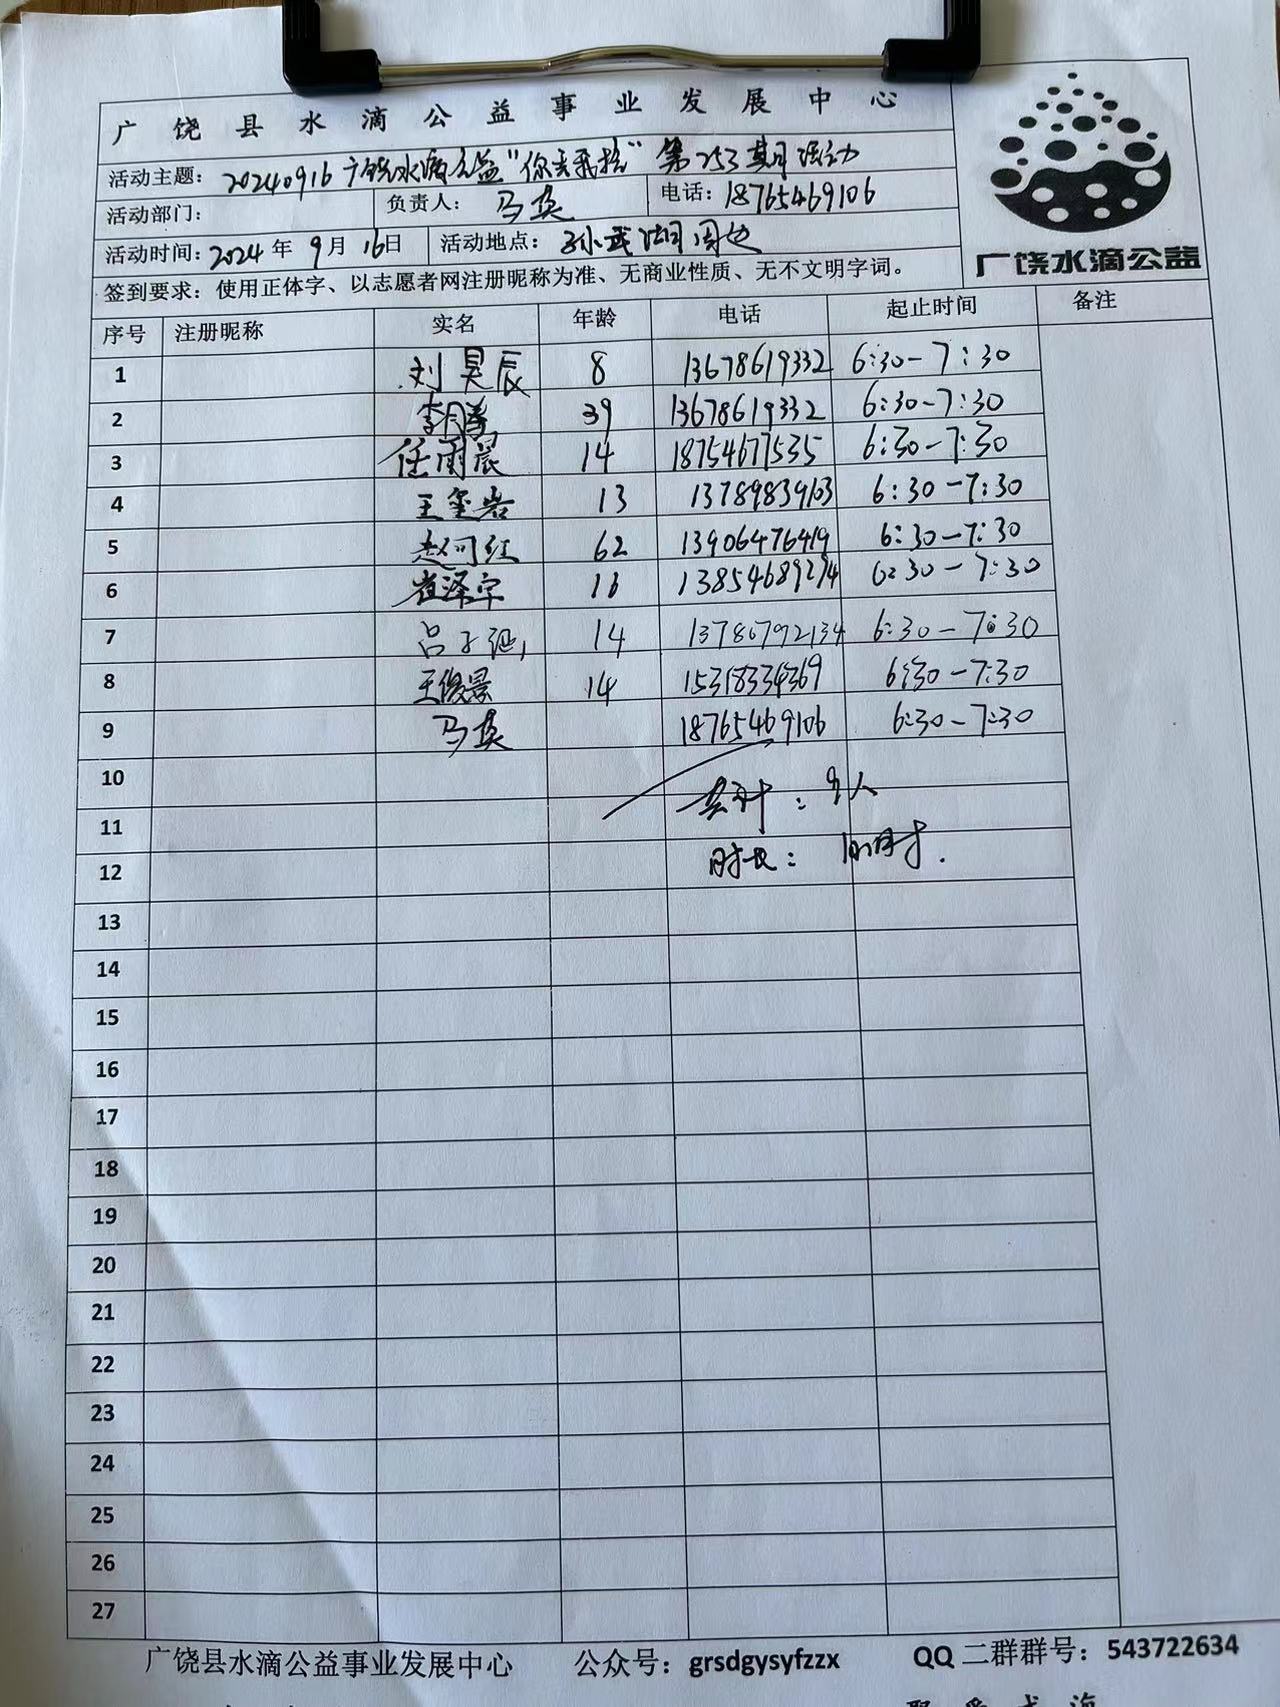 广饶县水滴公益事业发展中心
活动主题: 20240916广饶水滴公益"你丢我捡"第253期活动
活动部门: 负责人: 马英 电话: 18765469106
活动时间: 2024年9月16日 活动地点: 孙武湖周边
签到要求: 使用正体字、以志愿者网注册昵称为准、无商业性质、无不文明字词。
广饶水滴公益
序号 注册昵称 实名 年龄 电话 起止时间 备注
1 刘昊辰 8 13678619332 6:30-7:30
2 39 13678619332 6:30-7:30
3 任雨晨 14 18754677535 6:30-7:30
4 王玺岩 13 13789839163 6:30-7:30
5 赵问红 62 13906476419 6:30-7:30
6 崔泽宇 13854689294 6:30-7:30
7 吕子涵 14 13780792134 6:30-7:30
8 王俊景 14 15318334369 6:30-7:30
9 马英 18765469106 6:30-7:30
10 共计: 9人
11
12 时长:
13
14
15
16
17
18
19
20
21
22
23
24
25
26
27
广饶县水滴公益事业发展中心 公众号: grsdgysyfzzx QQ二群群号: 543722634